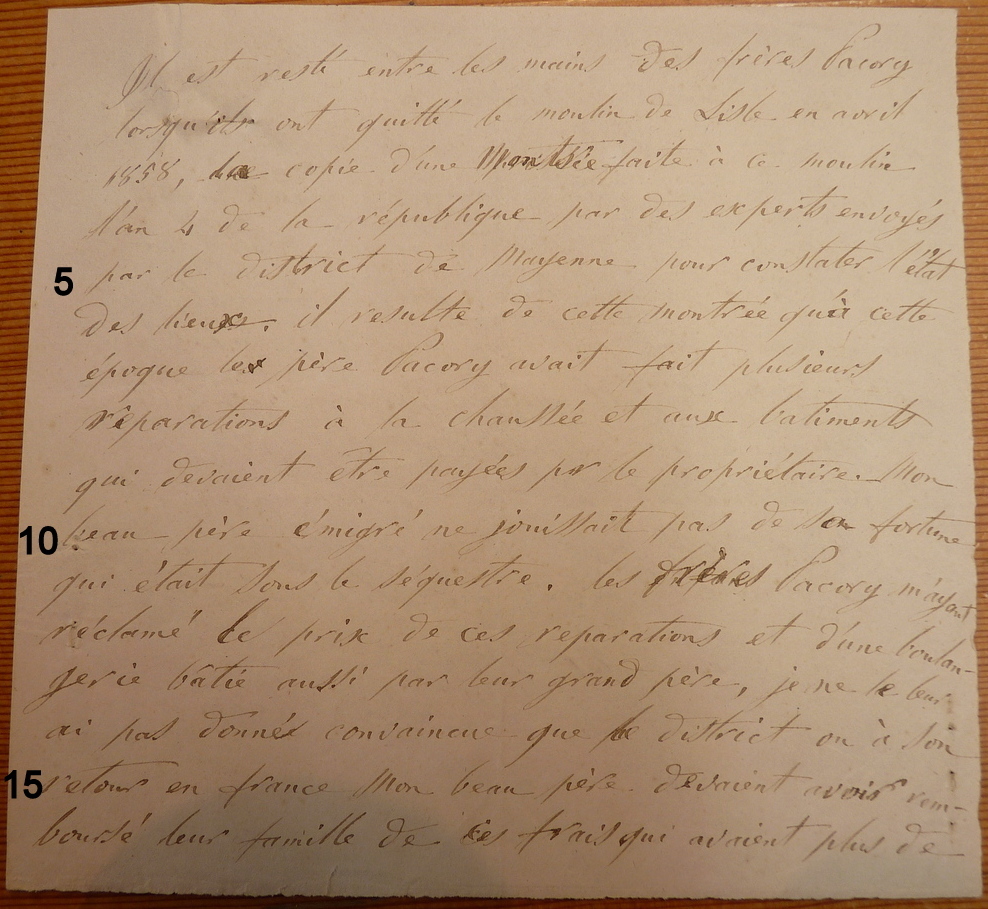 Il est resté entre les mains des frères Pacory
lorsqu'ils ont quitté le moulin de Lisle en avril
1858, la copie d'une Montrée faite à ce moulin
l'an 4 de la république par des experts envoyés
5 par le district de Mayenne pour constater l'état
des lieux. il resulte de cette montrée qu'à cette
époque le père Pacory avait fait plusieurs
réparations à la chaussée et aux batiments
qui devaient être payées par le propriétaire. Mon
10 beau père émigré ne jouissait pas de son fortune
qui était sous le séquestre. les frères Pacory m'ayant
réclamé le prix de ces reparations et d'une boulan-
gerie bâtie aussi par leur grand père, je ne le leur
ai pas donné convaincue que le district ou à son
15 retour en france Mon beau père devaient avoir rem-
boursé leur famille de ces frais qui avaient plus de